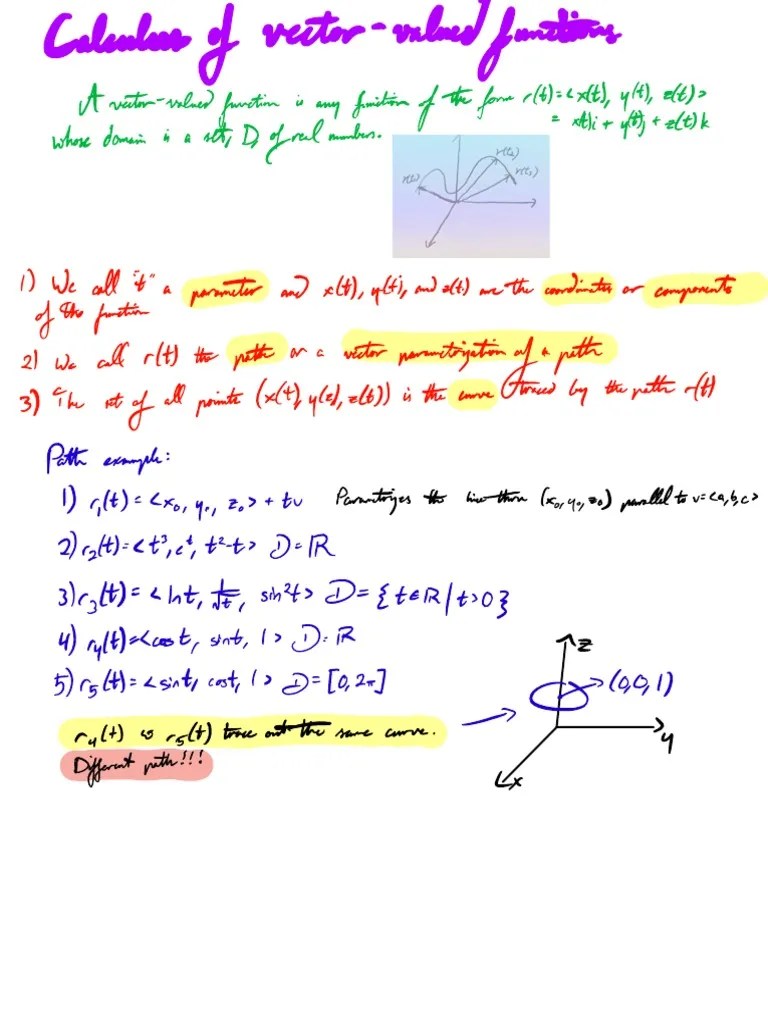 Calculus of vector-valued functions
A vector-valued function is any function of the form r(t)=<x(t), y(t), z(t)>
= x(t)i + y(t)j + z(t)k
whose domain is a set, D, of real numbers.
r(t₂)
r(t₁)
1) We call "t" a parameter and x(t), y(t), and z(t) are the coordinates or components
of the function
2) We call r(t) the path or a vector parametrization of a path
3) The set of all points (x(t), y(z), z(t)) is the curve traced by the path r(t)
Path example:
1) r₁(t) = <x₀, y₀, z₀> + tv Parametrizes the line thru (x₀, y₀, z₀) parallel to v=<a,b,c>
2) r₂(t)=<t³, eᵗ, t²-t> D=ℝ
3) r₃(t) = <ln t, 1/√t, sin²t> D = {t∈ℝ | t>0}
4) r₄(t)=<cos t, sin t, 1> D=ℝ
5) r₅(t)=<sin t, cos t, 1> D=[0, 2π]
r₄(t) r₅(t) trace out the same curve.
Different path!!!
z
(0,0,1)
y
x